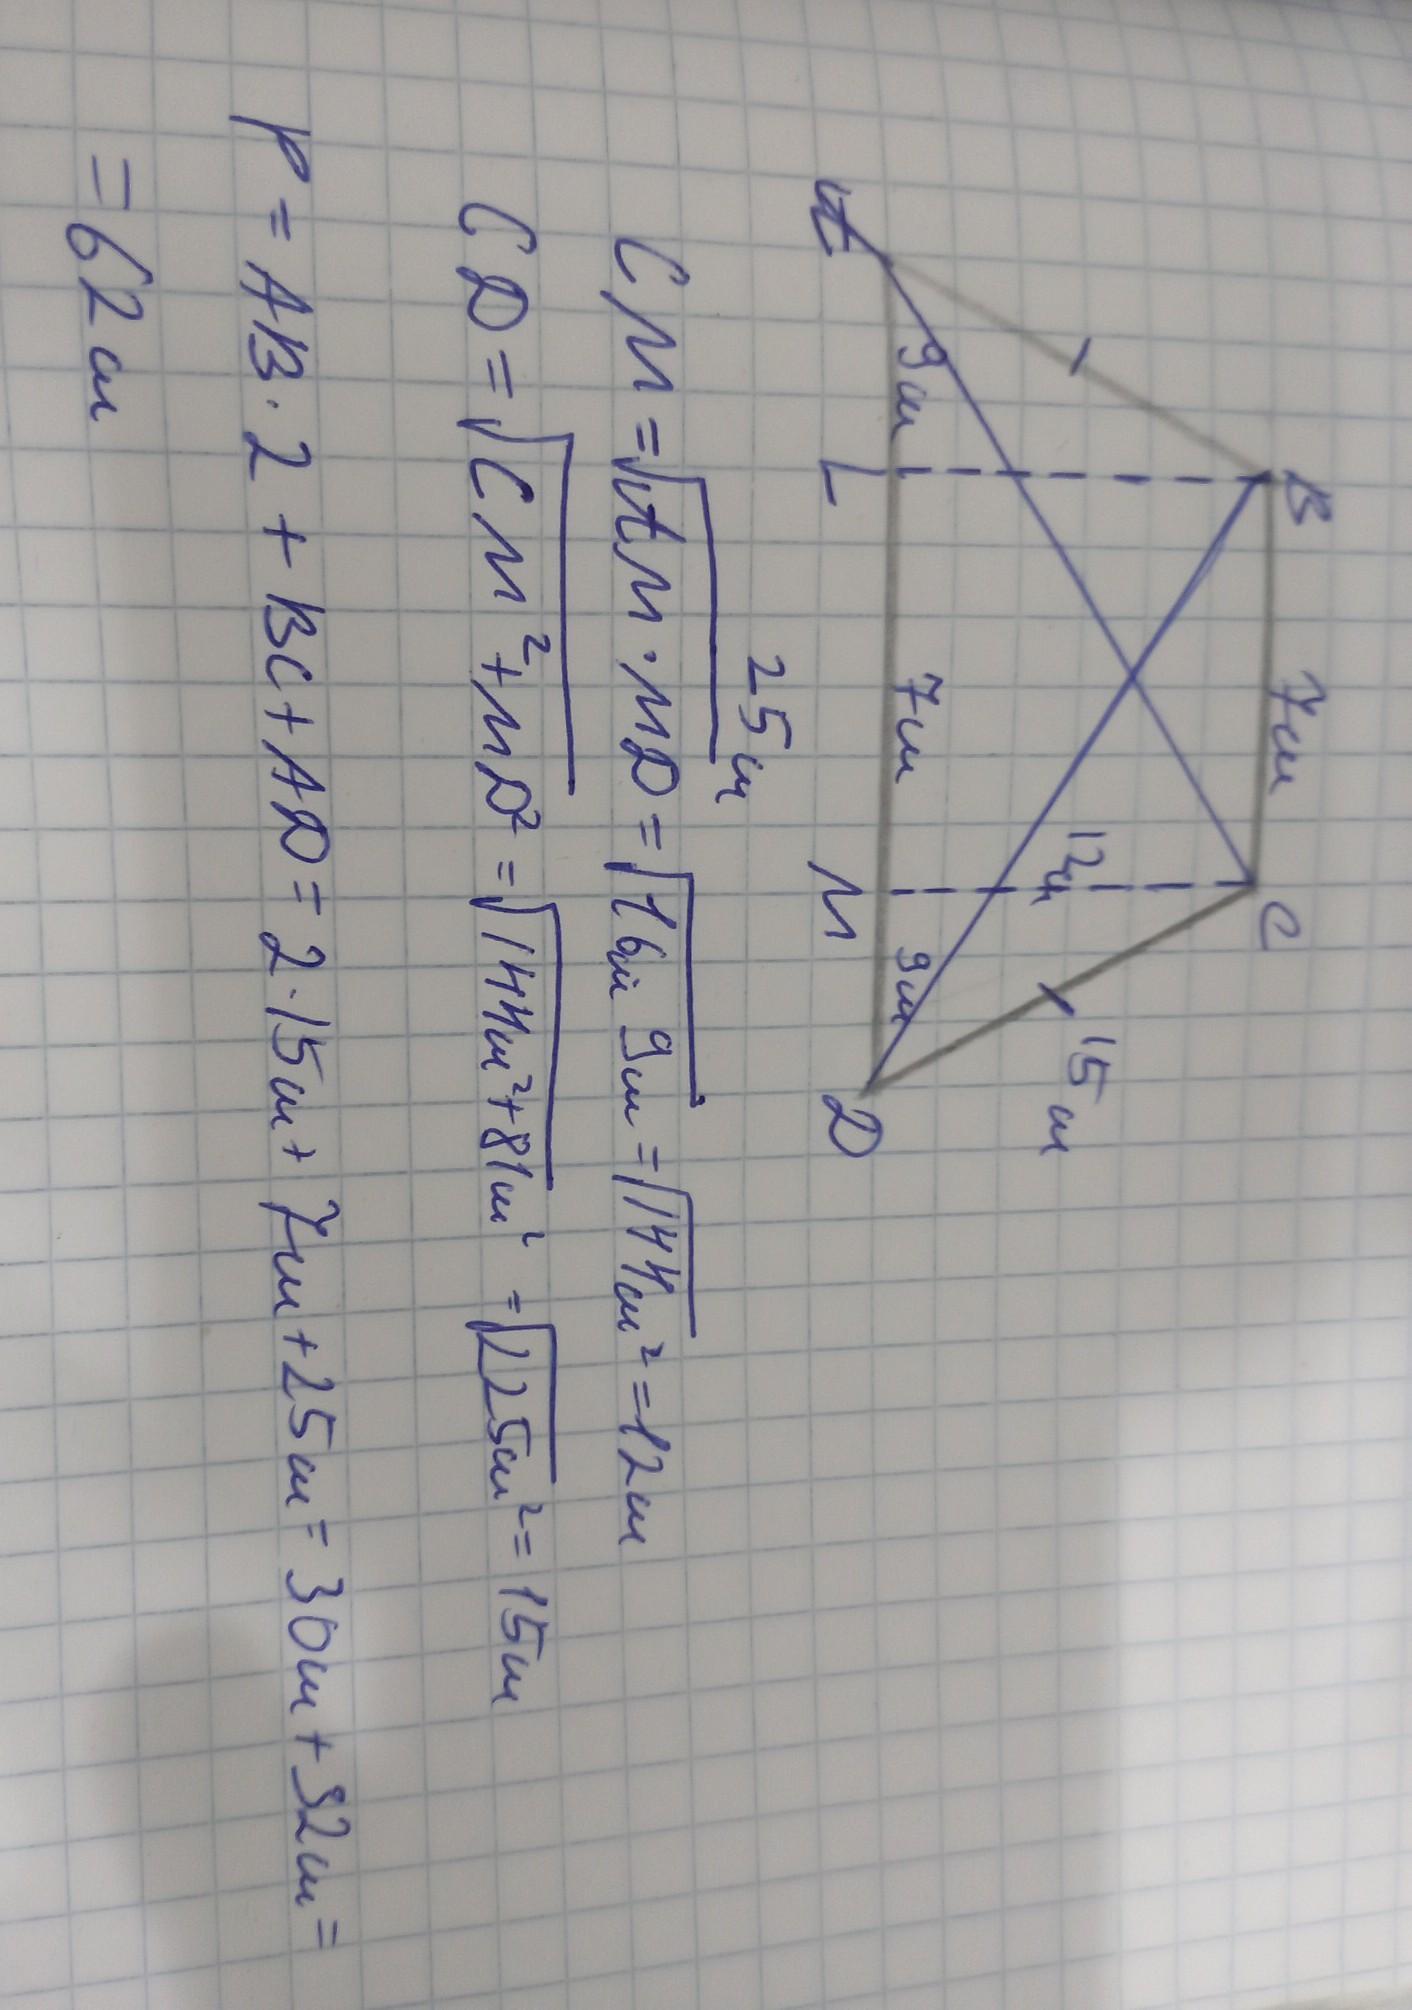 B 7см C
12см 15см
A 9см 7см 9см D
L M
25см
CM = √AM·MD = √16см 9см = √144см² = 12см
CD = √CM²+MD² = √144см²+81см² = √225см² = 15см
P = AB·2 + BC + AD = 2·15см + 7см + 25см = 30см + 32см =
= 62см